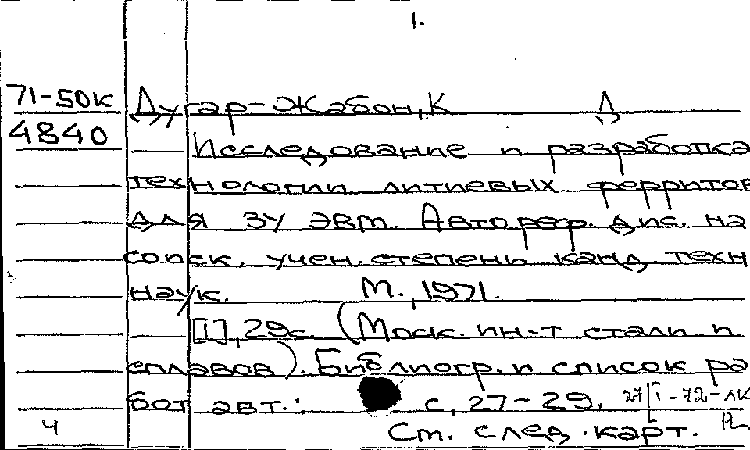 1.
71-50к Дугар-Жабон, К Д
4840
Исследование и разработка
технологии литиевых ферритов
для ЗУ ЭВМ. Автореф. дис. на
соиск. учен. степень канд. техн.
наук. М., 1971.
[1], 29с. (Моск. ин-т стали и
сплавов). Библиогр. и список ра
бот авт.: с. 27-29.
ч См. след. карт.